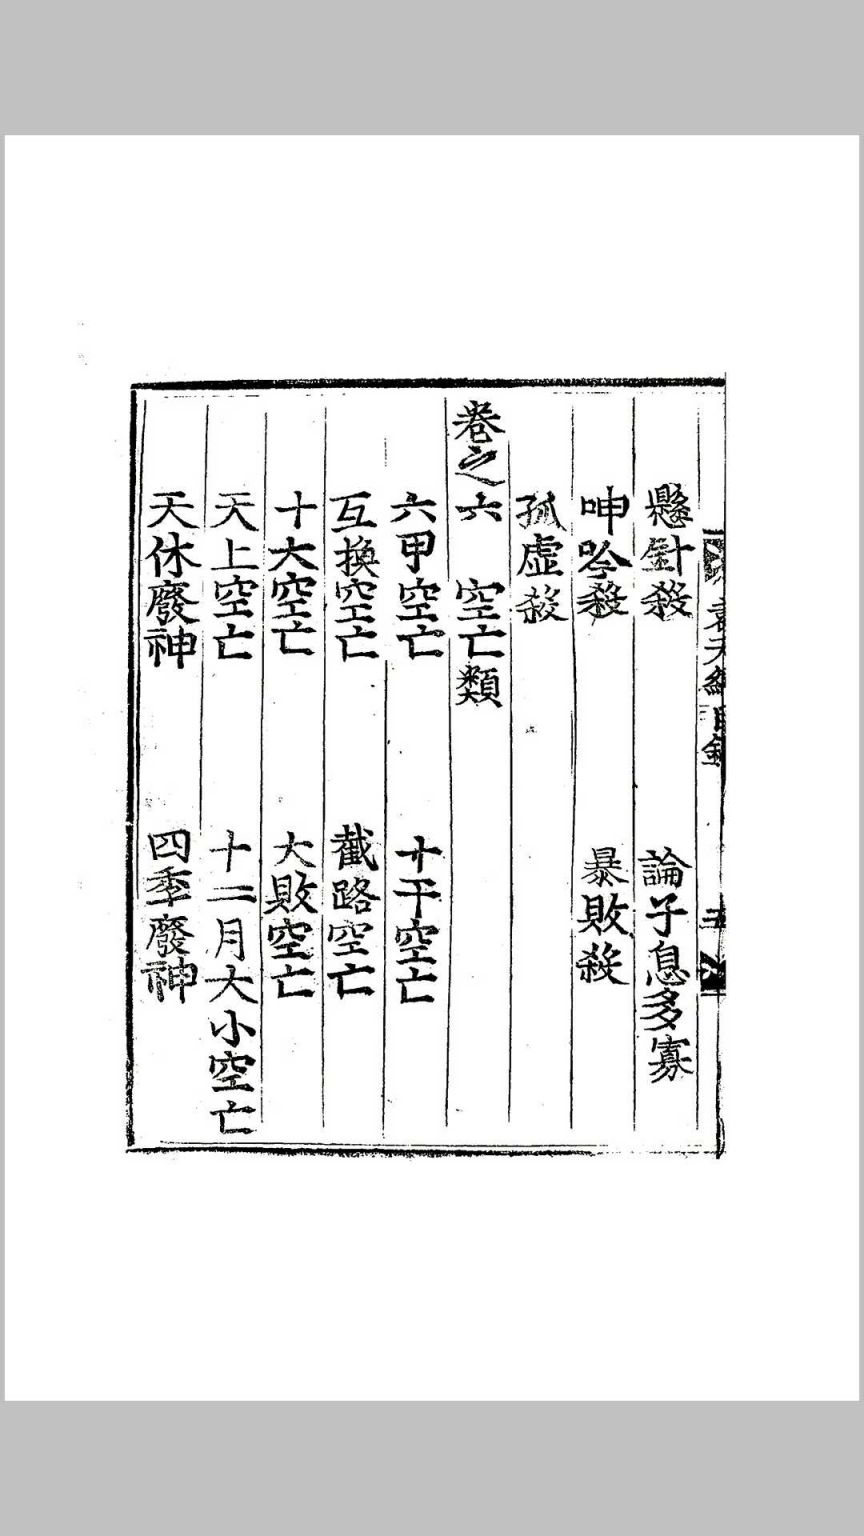 懸針殺　論子息多寡
呻吟殺　暴敗殺
孤虛殺
卷之六　空亡類
六甲空亡　十干空亡
互換空亡　截路空亡
十大空亡　大敗空亡
天上空亡　十二月大小空亡
天休廢神　四季廢神